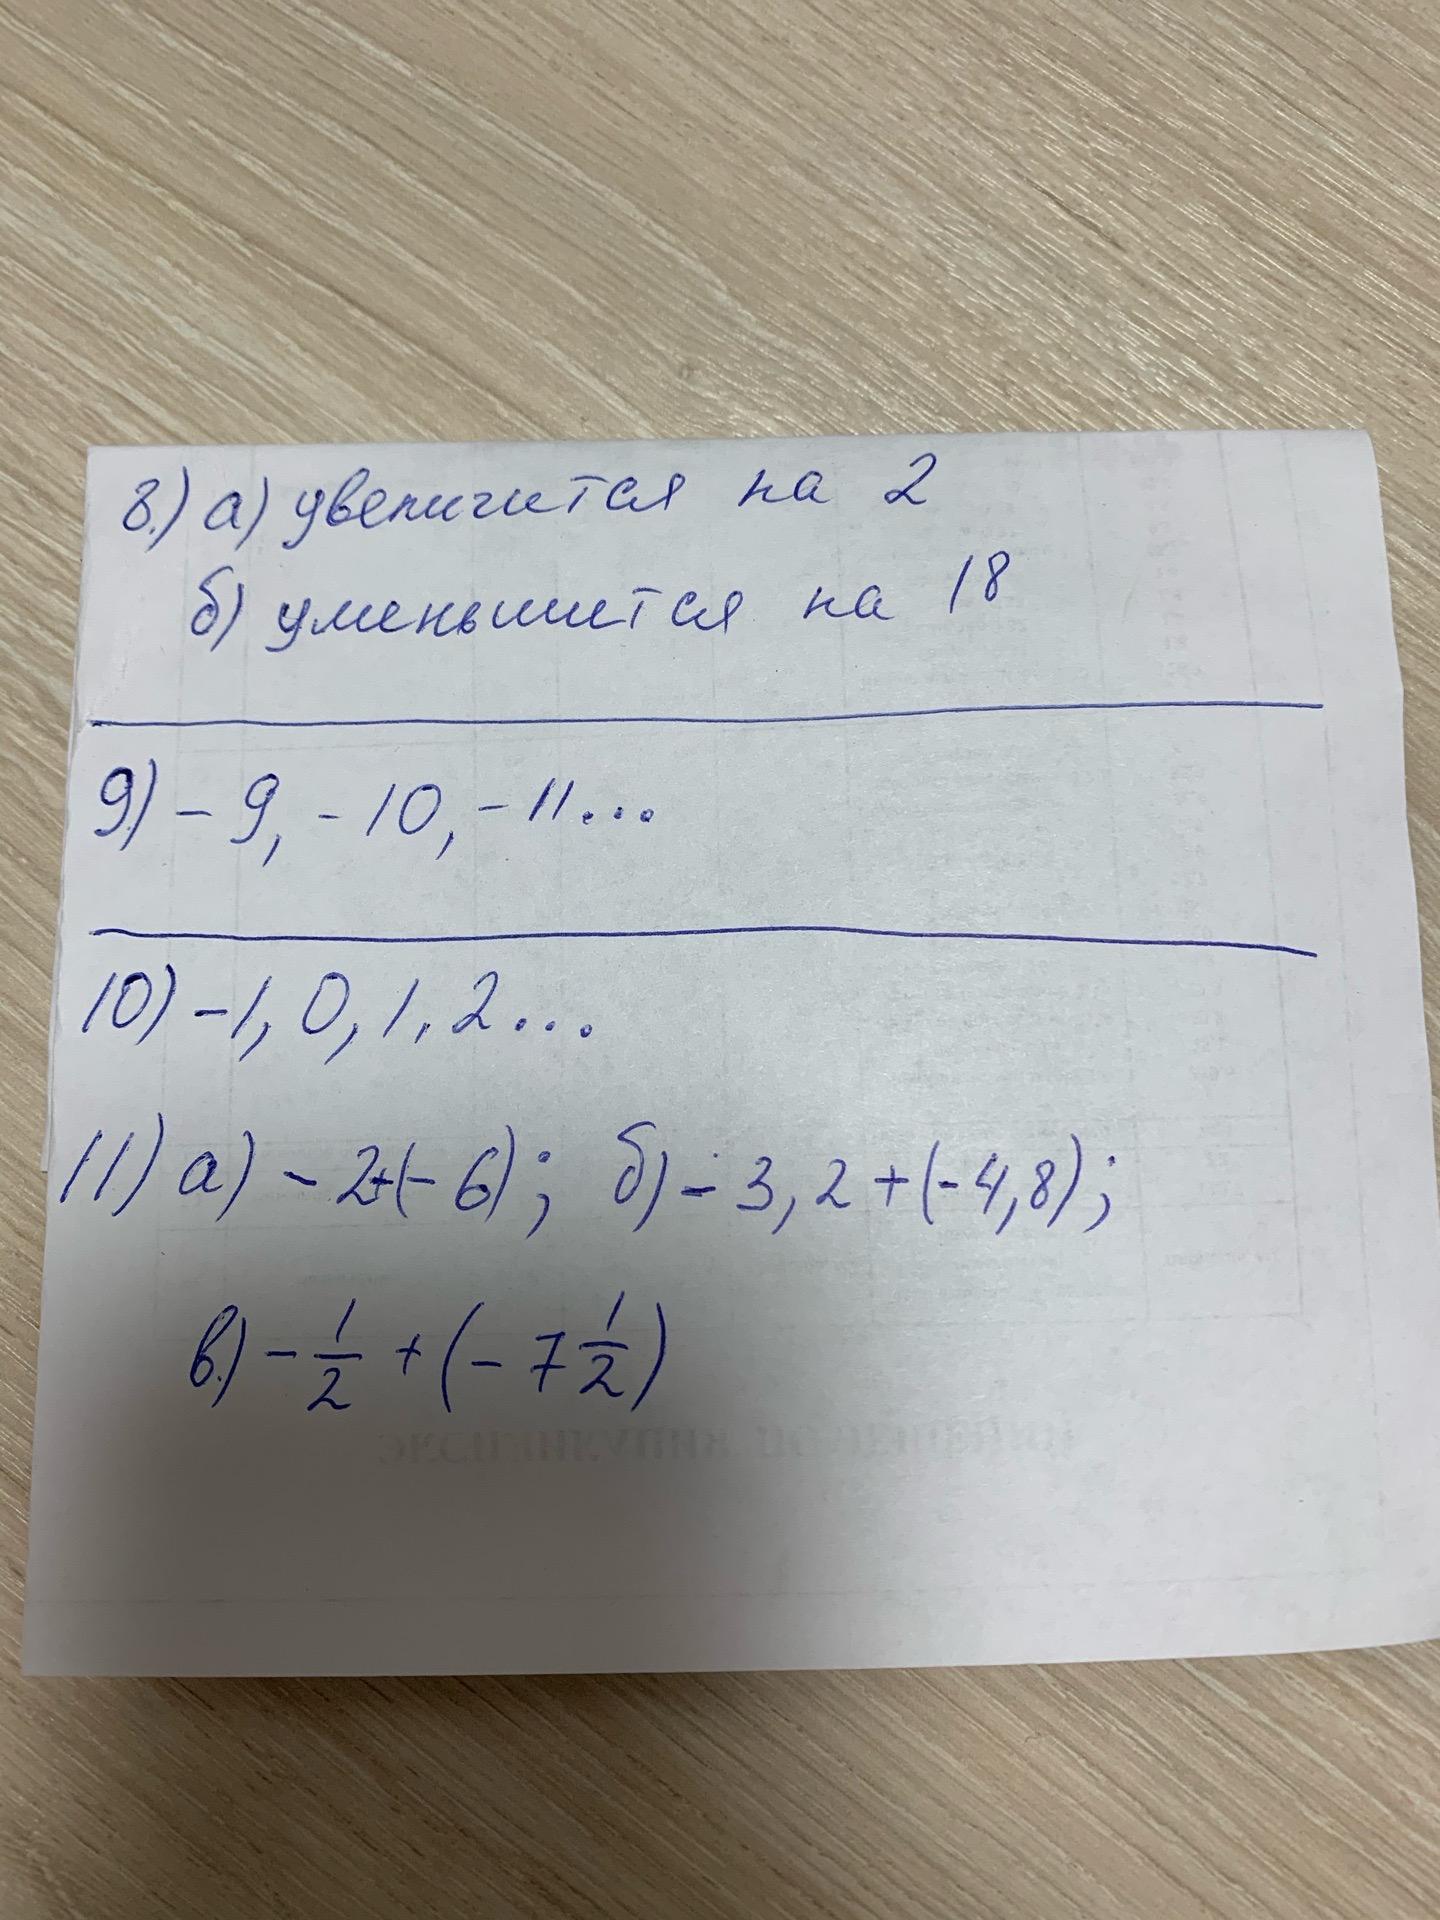 8.) а) увеличится на 2
б) уменьшится на 18
9.) - 9, - 10, - 11...
10) -1, 0, 1, 2...
11) а) - 2+(- 6); б) - 3,2 + (- 4,8);
в.) - 1/2 + (- 7 1/2)